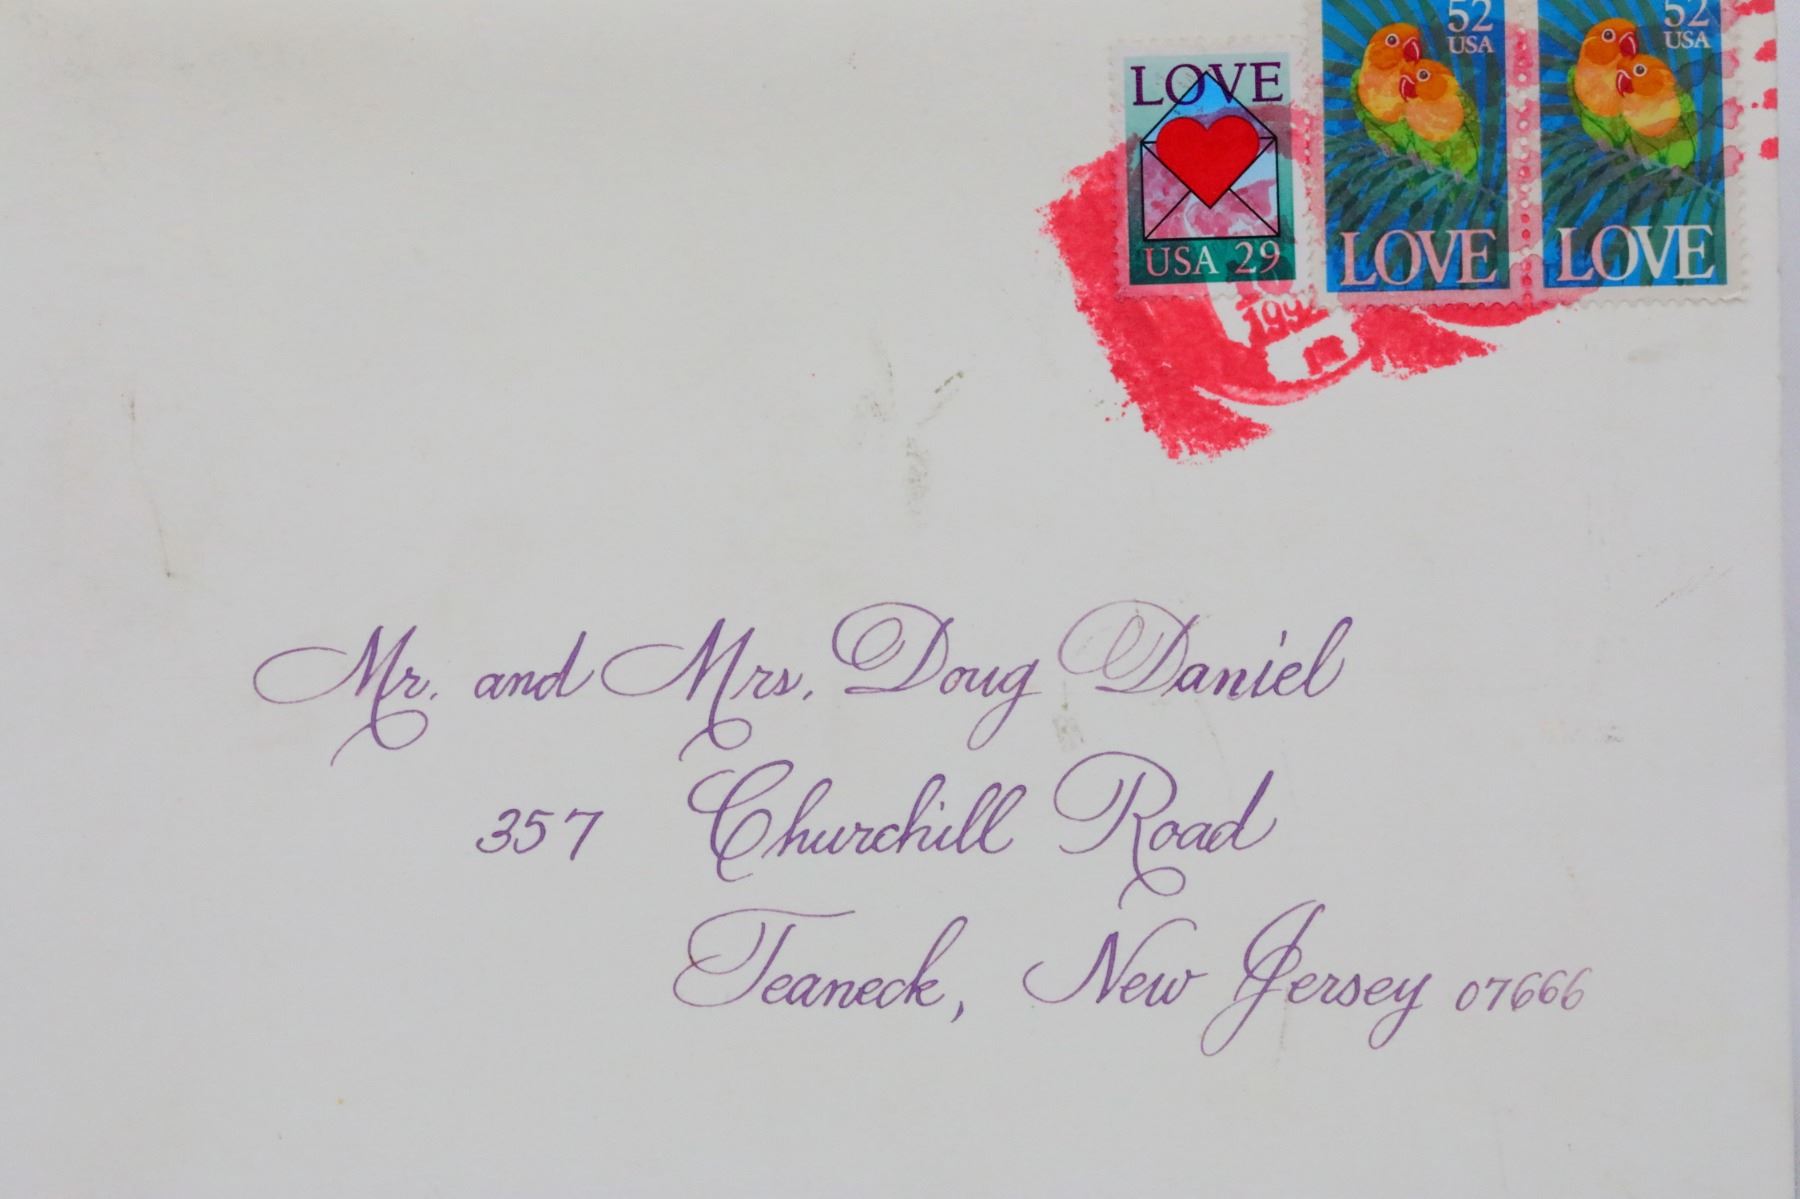 LOVE
USA 29
52
USA
LOVE
52
USA
LOVE
Mr. and Mrs. Doug Daniel
357 Churchill Road
Teaneck, New Jersey 07666